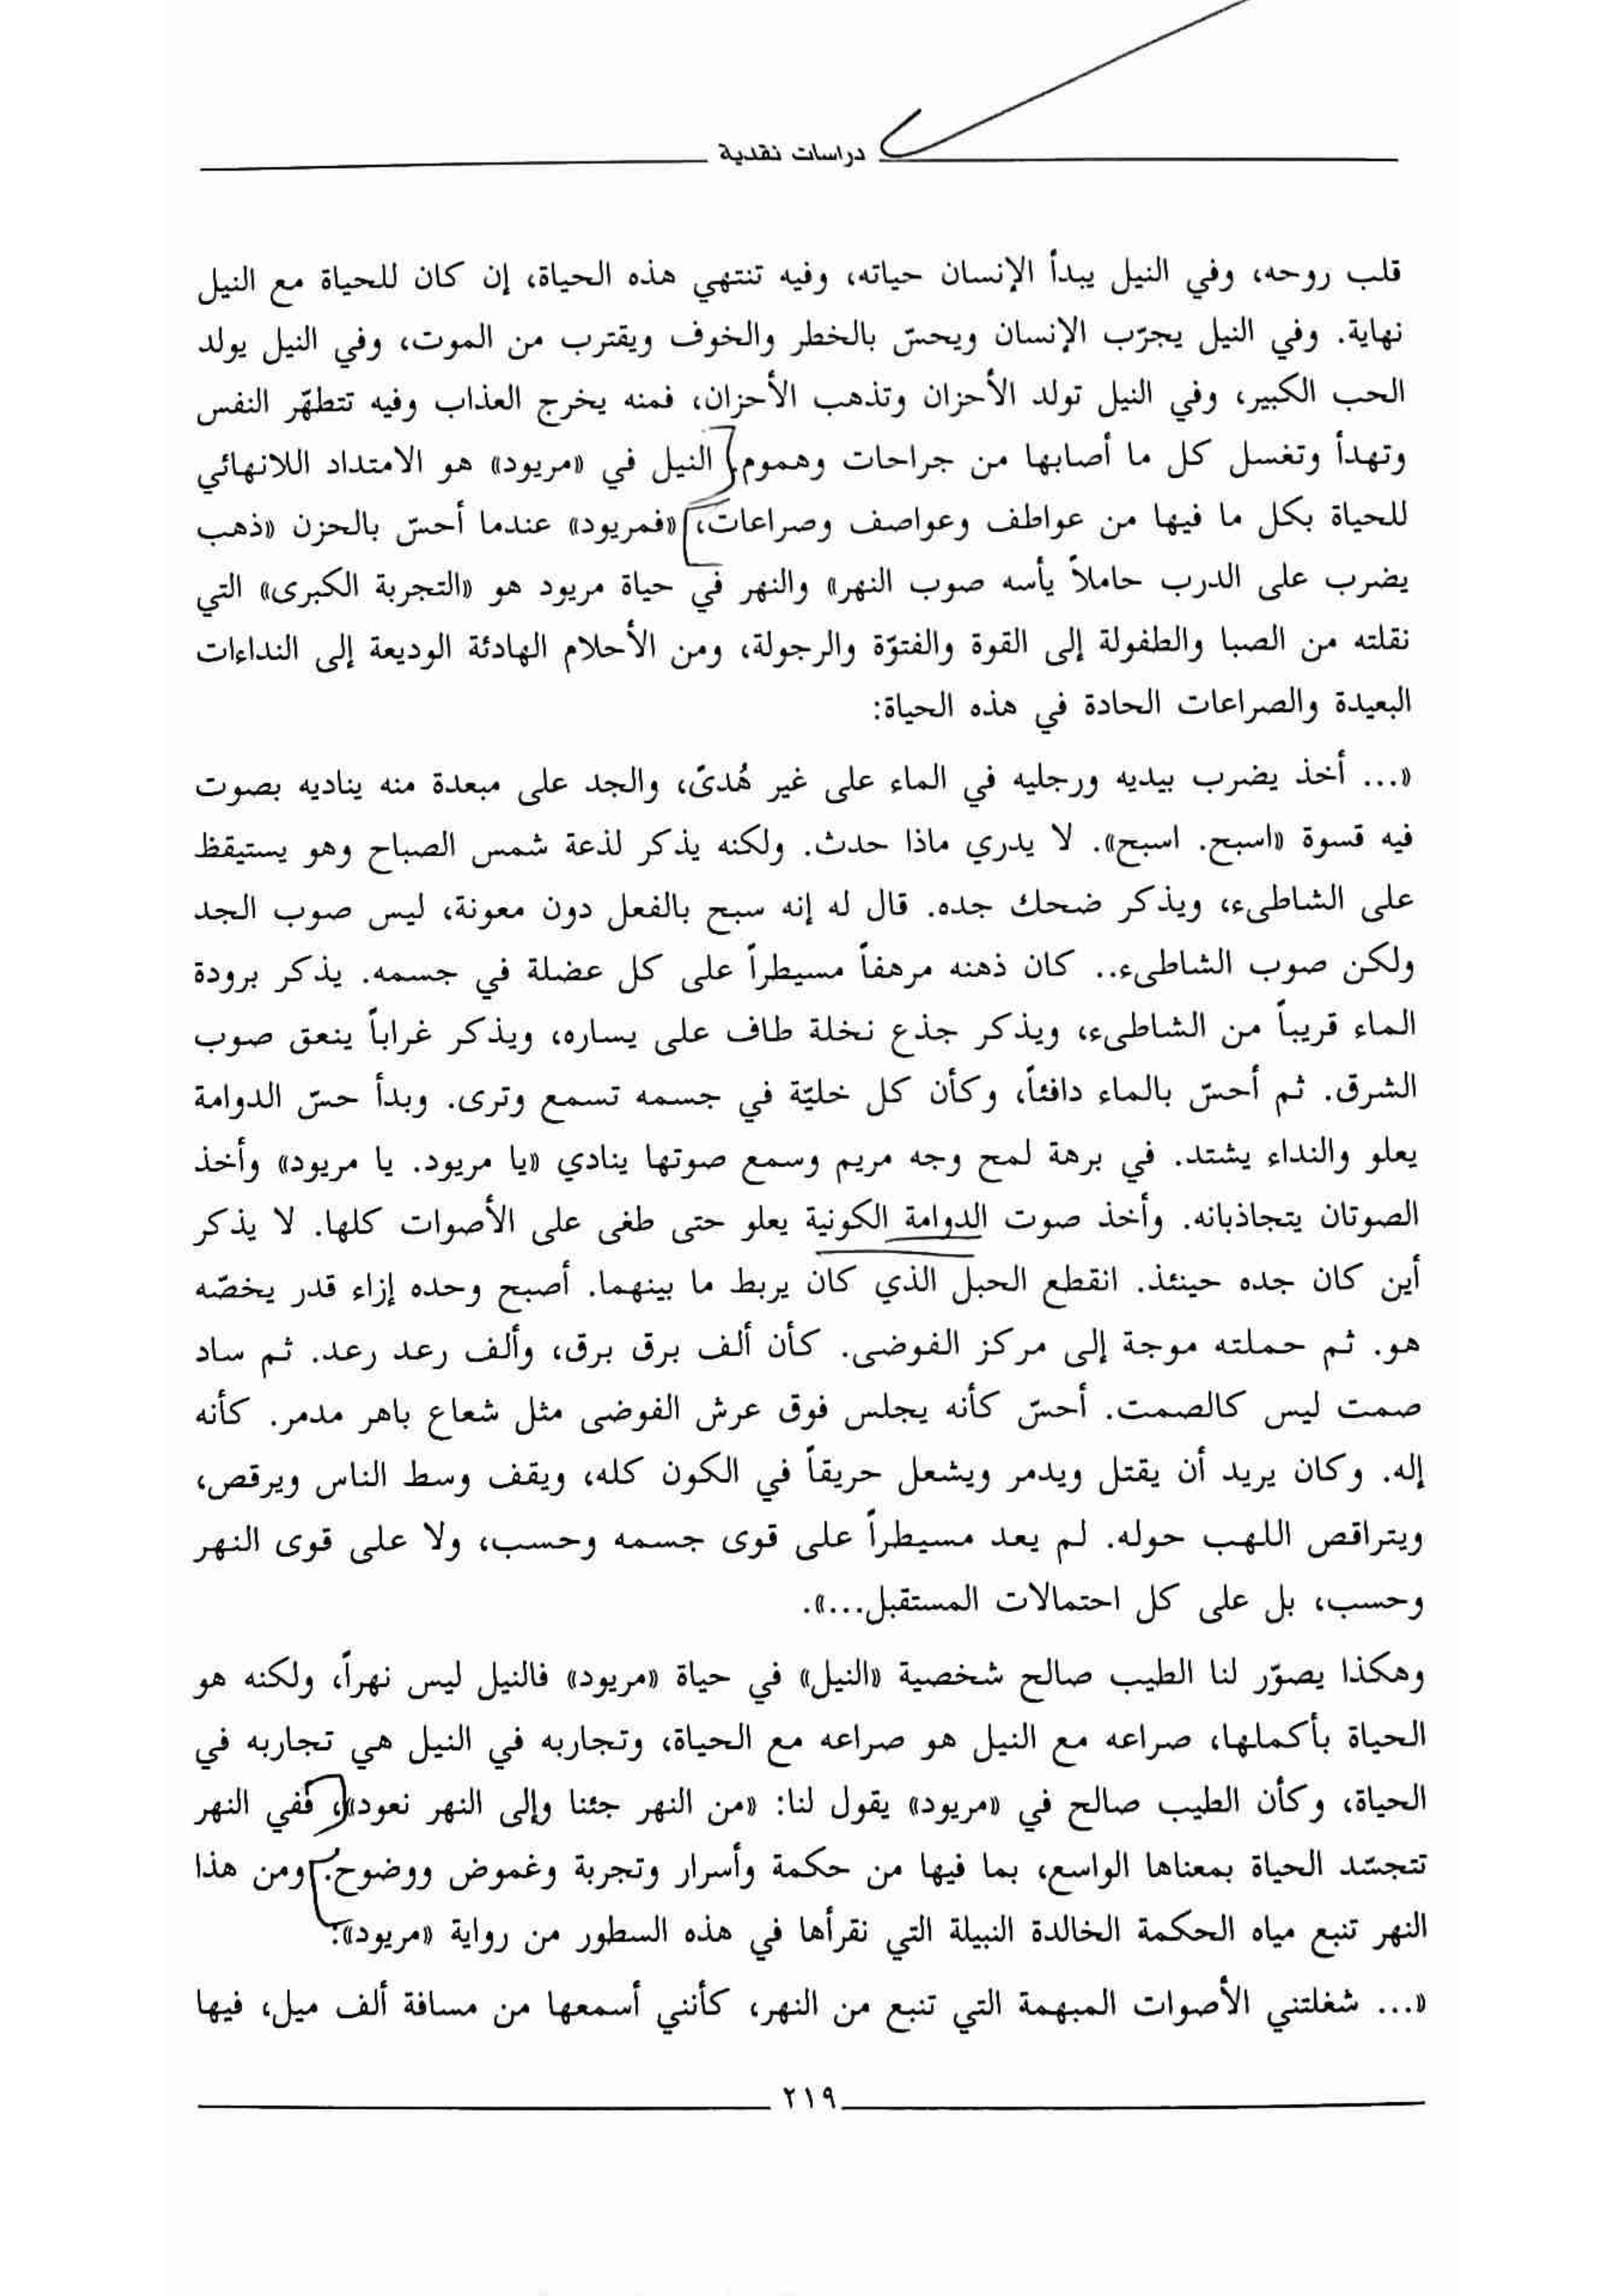 دراسات نقدية
قلب روحه، وفي النيل يبدأ الإنسان حياته، وفيه تنتهي هذه الحياة، إن كان للحياة مع النيل
نهاية. وفي النيل يجرّب الإنسان ويحسّ بالخطر والخوف ويقترب من الموت، وفي النيل يولد
الحب الكبير، وفي النيل تولد الأحزان وتذهب الأحزان، فمنه يخرج العذاب وفيه تتطهّر النفس
وتهدأ وتغسل كل ما أصابها من جراحات وهموم. النيل في «مريود» هو الامتداد اللانهائي
للحياة بكل ما فيها من عواطف وعواصف وصراعات، «فمريود» عندما أحسّ بالحزن «ذهب
يضرب على الدرب حاملاً يأسه صوب النهر» والنهر في حياة مريود هو «التجربة الكبرى» التي
نقلته من الصبا والطفولة إلى القوة والفتوّة والرجولة، ومن الأحلام الهادئة الوديعة إلى النداءات
البعيدة والصراعات الحادة في هذه الحياة:
«... أخذ يضرب بيديه ورجليه في الماء على غير هُدىً، والجد على مبعدة منه يناديه بصوت
فيه قسوة «اسبح. اسبح». لا يدري ماذا حدث. ولكنه يذكر لذعة شمس الصباح وهو يستيقظ
على الشاطىء، ويذكر ضحك جده. قال له إنه سبح بالفعل دون معونة، ليس صوب الجد
ولكن صوب الشاطىء.. كان ذهنه مرهفاً مسيطراً على كل عضلة في جسمه. يذكر برودة
الماء قريباً من الشاطىء، ويذكر جذع نخلة طاف على يساره، ويذكر غراباً ينعق صوب
الشرق. ثم أحسّ بالماء دافئاً، وكأن كل خليّة في جسمه تسمع وترى. وبدأ حسّ الدوامة
يعلو والنداء يشتد. في برهة لمح وجه مريم وسمع صوتها ينادي «يا مريود. يا مريود» وأخذ
الصوتان يتجاذبانه. وأخذ صوت الدوامة الكونية يعلو حتى طغى على الأصوات كلها. لا يذكر
أين كان جده حينئذ. انقطع الحبل الذي كان يربط ما بينهما. أصبح وحده إزاء قدر يخصّه
هو. ثم حملته موجة إلى مركز الفوضى. كأن ألف برق برق، وألف رعد رعد. ثم ساد
صمت ليس كالصمت. أحسّ كأنه يجلس فوق عرش الفوضى مثل شعاع باهر مدمر. كأنه
إله. وكان يريد أن يقتل ويدمر ويشعل حريقاً في الكون كله، ويقف وسط الناس ويرقص،
ويتراقص اللهب حوله. لم يعد مسيطراً على قوى جسمه وحسب، ولا على قوى النهر
وحسب، بل على كل احتمالات المستقبل...».
وهكذا يصوّر لنا الطيب صالح شخصية «النيل» في حياة «مريود» فالنيل ليس نهراً، ولكنه هو
الحياة بأكملها، صراعه مع النيل هو صراعه مع الحياة، وتجاربه في النيل هي تجاربه في
الحياة، وكأن الطيب صالح في «مريود» يقول لنا: «من النهر جئنا وإلى النهر نعود»، ففي النهر
تتجسّد الحياة بمعناها الواسع، بما فيها من حكمة وأسرار وتجربة وغموض ووضوح. ومن هذا
النهر تنبع مياه الحكمة الخالدة النبيلة التي نقرأها في هذه السطور من رواية «مريود»:
«... شغلتني الأصوات المبهمة التي تنبع من النهر، كأنني أسمعها من مسافة ألف ميل، فيها
٢١٩